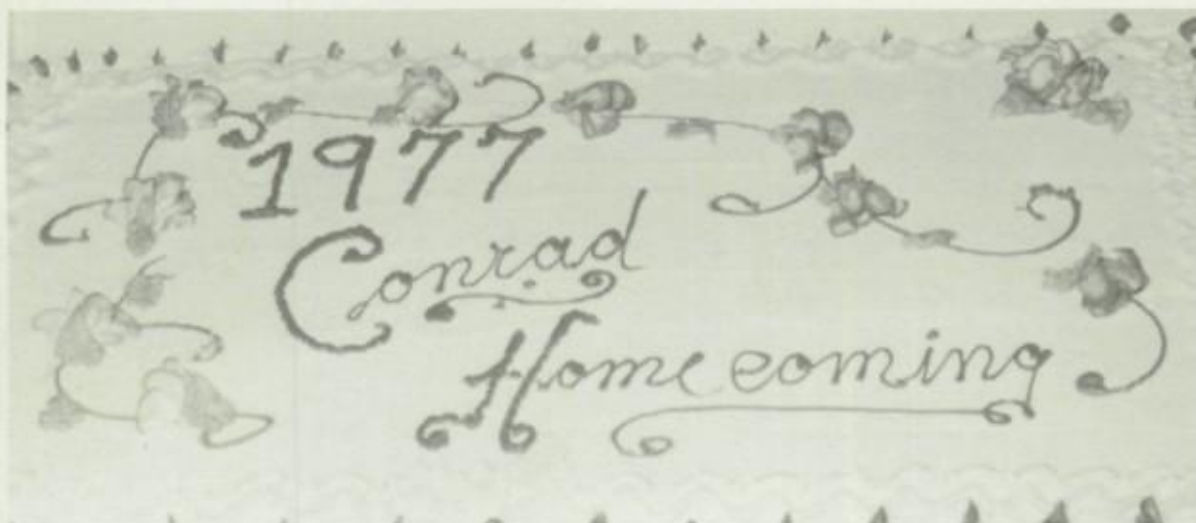 1977
Conrad
Homecoming